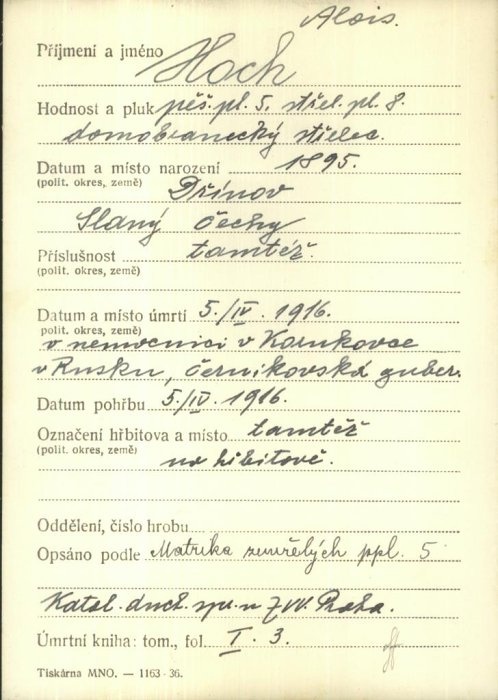 Alois.
Příjmení a jméno Hoch
Hodnost a pluk pěš. pl. 5. střel. pl. 8.
domobranecký střelec.
Datum a místo narození 1895.
(polit. okres, země) Dřínov
Slaný čechy
Příslušnost tamtéž.
(polit. okres, země)
Datum a místo úmrtí 5./IV. 1916.
(polit. okres, země)
v nemocnici v Korukovce
v Rusku, černikovská guber.
Datum pohřbu 5./IV. 1916.
Označení hřbitova a místo tamtéž
(polit. okres, země) na hřbitově.
Oddělení, číslo hrobu
Opsáno podle Matrika zemřelých ppl. 5
Katol. duch. spr. u ZVV. Praha.
Úmrtní kniha: tom., fol. I. 3.
Tiskárna MNO. — 1163 - 36.